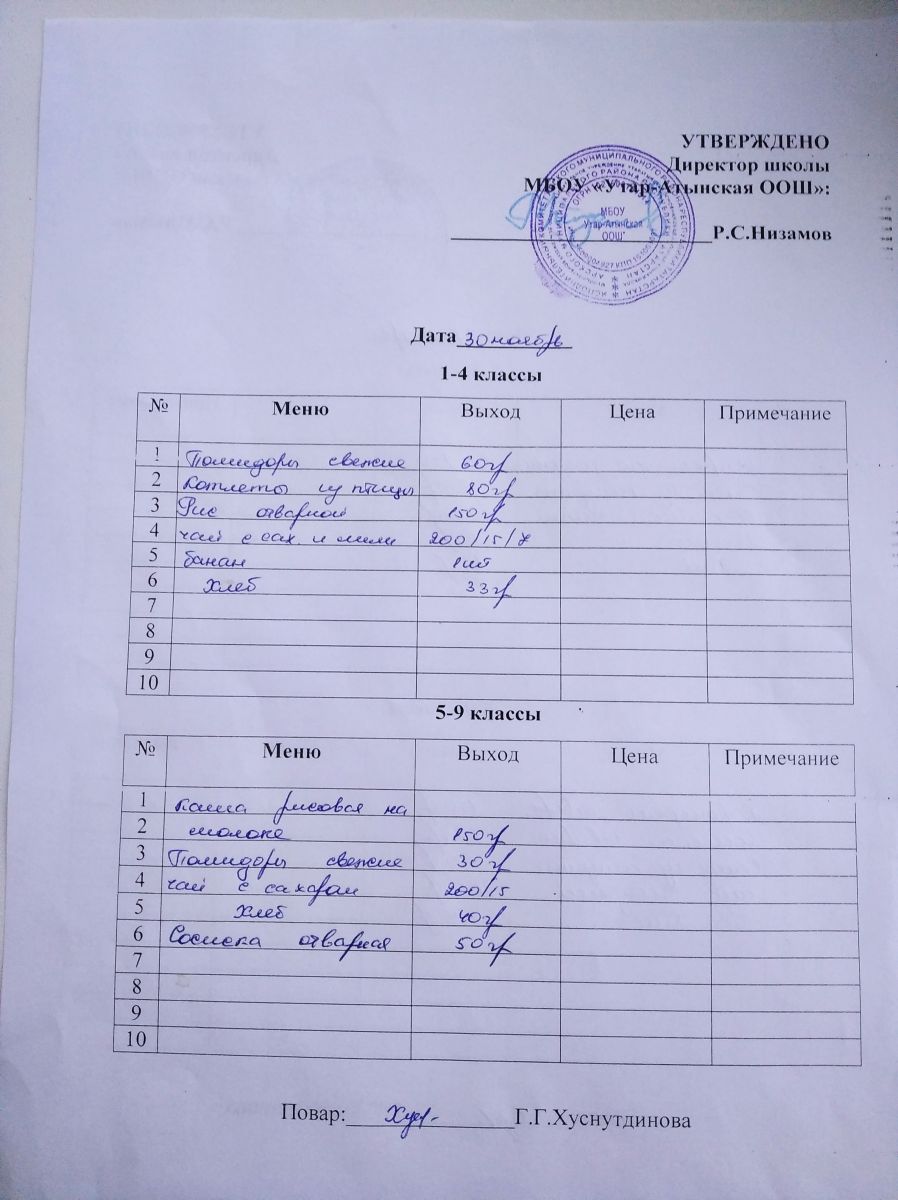 УТВЕРЖДЕНО
Директор школы
МБОУ «Утар-Атынская ООШ»:
МБОУ
"Утар-Атынская
ООШ"
Р.С.Низамов
Дата 30 ноябрь
1-4 классы
№ Меню Выход Цена Примечание
1 Помидоры свежие 60гр
2 Котлеты из птицы 80гр
3 Рис отварной 150гр
4 чай с сах. и лим 200/15/7
5 банан 1шт
6 Хлеб 33гр
7
8
9
10
5-9 классы
№ Меню Выход Цена Примечание
1 каша рисовая на
2 молоке 150гр
3 Помидоры свежие 30гр
4 чай с сахаром 200/15
5 Хлеб 40гр
6 Сосиска отварная 50гр
7
8
9
10
Повар: Г.Г.Хуснутдинова